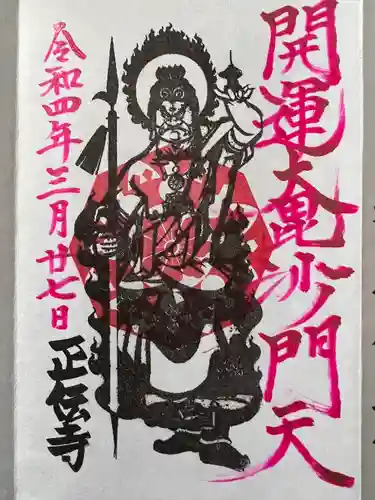 開運大毘沙門天
令和四年三月廿七日
正伝寺